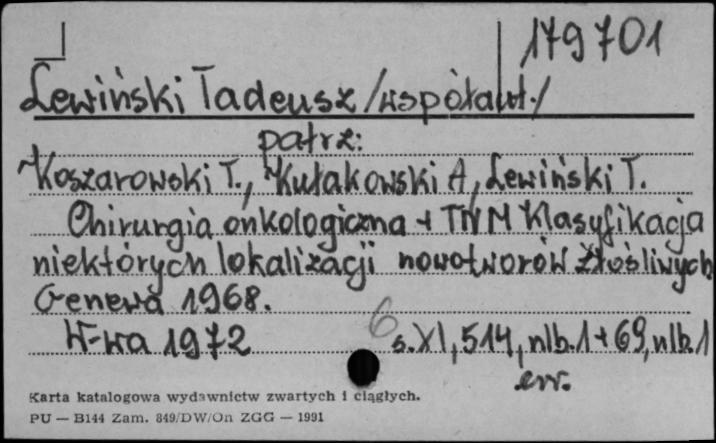 179701
Lewiński Tadeusz /współaut./
patrz:
Koszarowski T., Kułakowski A, Lewiński T.
Chirurgia onkologiczna + TNM Klasyfikacja
niektórych lokalizacji nowotworów złośliwych
Genewa 1968.
W-wa 1972 6 s. XI, 514, nlb.1 + 69, nlb.1
err.
Karta katalogowa wydawnictw zwartych i ciągłych.
PU — B144 Zam. 849/DW/On ZGG — 1991